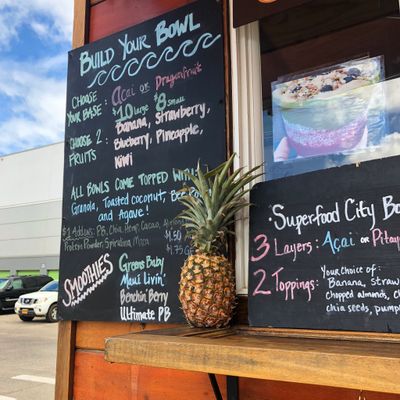 Build Your Bowl
Choose Your Base
Açai or Dragonfruit
$10 large $8 small
Choose 2 Fruits
Banana, Strawberry,
Blueberry, Pineapple,
Kiwi
All Bowls Come Topped with
Granola, Toasted Coconut, Bee
and Agave!
$1 Adders: PB, Chia, Hemp, Cacao,
Protein Powder, Spirulina, Maca
$1.50
$1.75
Smoothies
Greens Baby
Maui Livin'
Benchin Berry
Ultimate PB
Superfood City Bo
3 Layers: Açai or Pitay
2 Toppings:
Your Choice of:
Banana, Straw
chopped almonds, ch
chia seeds, pump